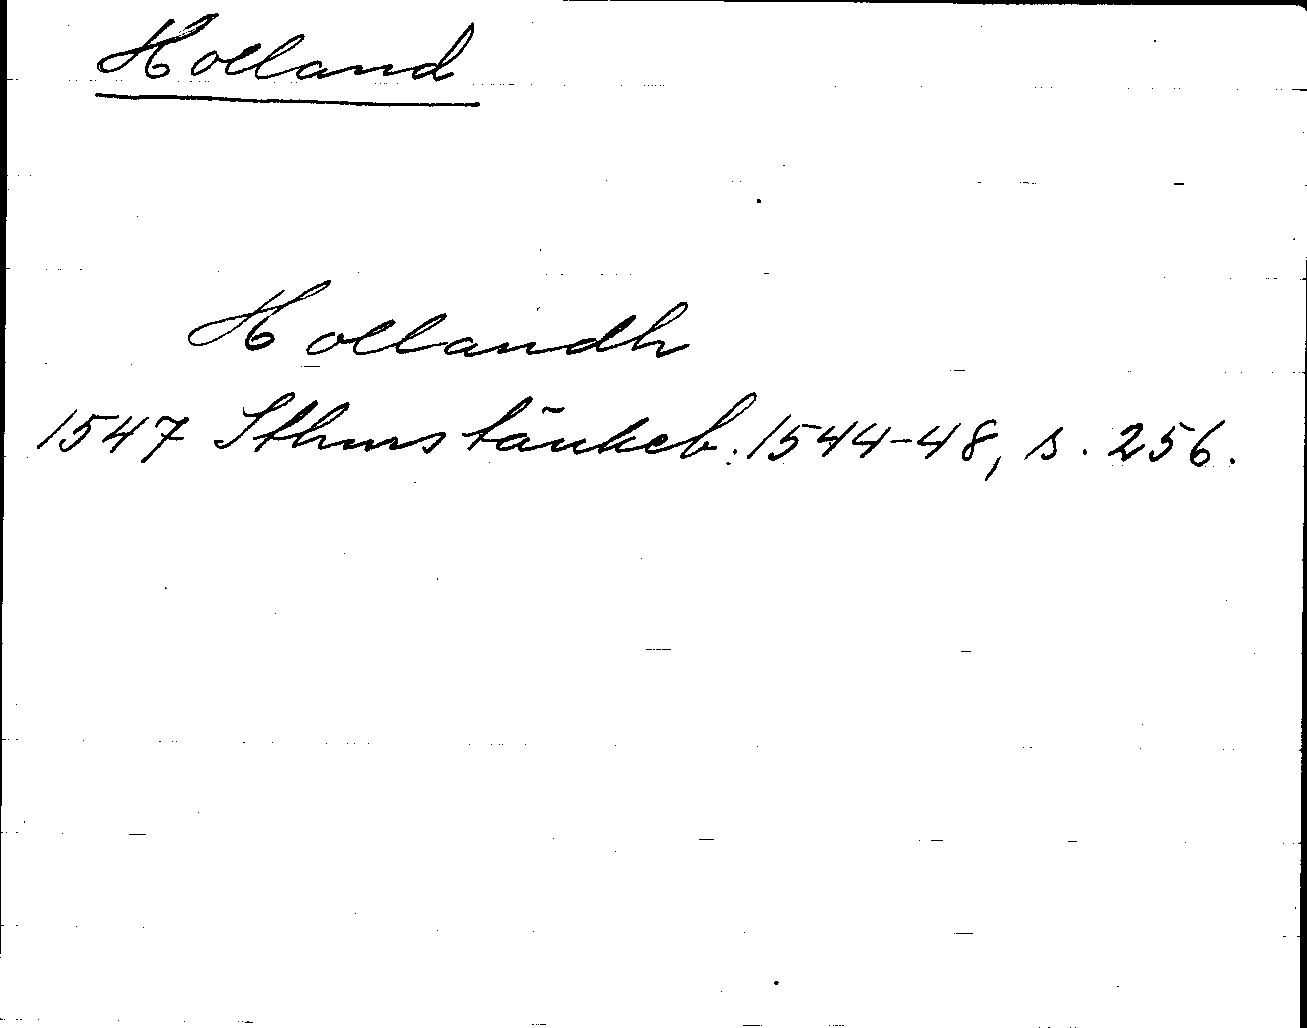 Holland
Hollandh
1547 Sthms tänkeb. 1544-48, s. 256.